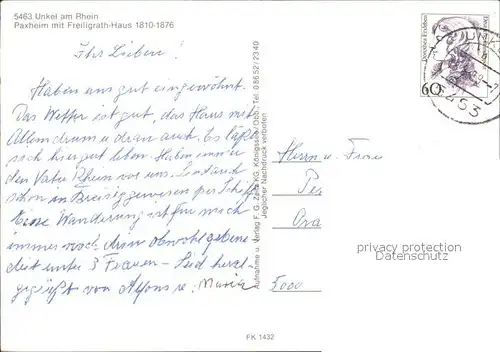 5463 Unkel am Rhein
Paxheim mit Freiligrath-Haus 1810-1876
Ihr Lieben!
Haben uns gut eingewöhnt.
Das Wetter ist gut, das Haus mit
Allem drum u. dran auch. Es läßt
sich hier gut leben. Haben immer
den Vater Rhein vor uns. Sind auch
schon in Breisig gewesen per Schiff
Eine Wanderung ist für mich
immer noch drin obwohl
unter 3 Frauen - Seid herzl.
gegrüßt von Alfons u. Maria
Aufnahme u. Verlag F. G. Zeitz KG, Königssee/Obb. · Tel. 08652/2340
Jeglicher Nachdruck verboten
60
5453
Herrn u. Frau
Pe
Ora
5000
privacy protection
Datenschutz
FK 1432